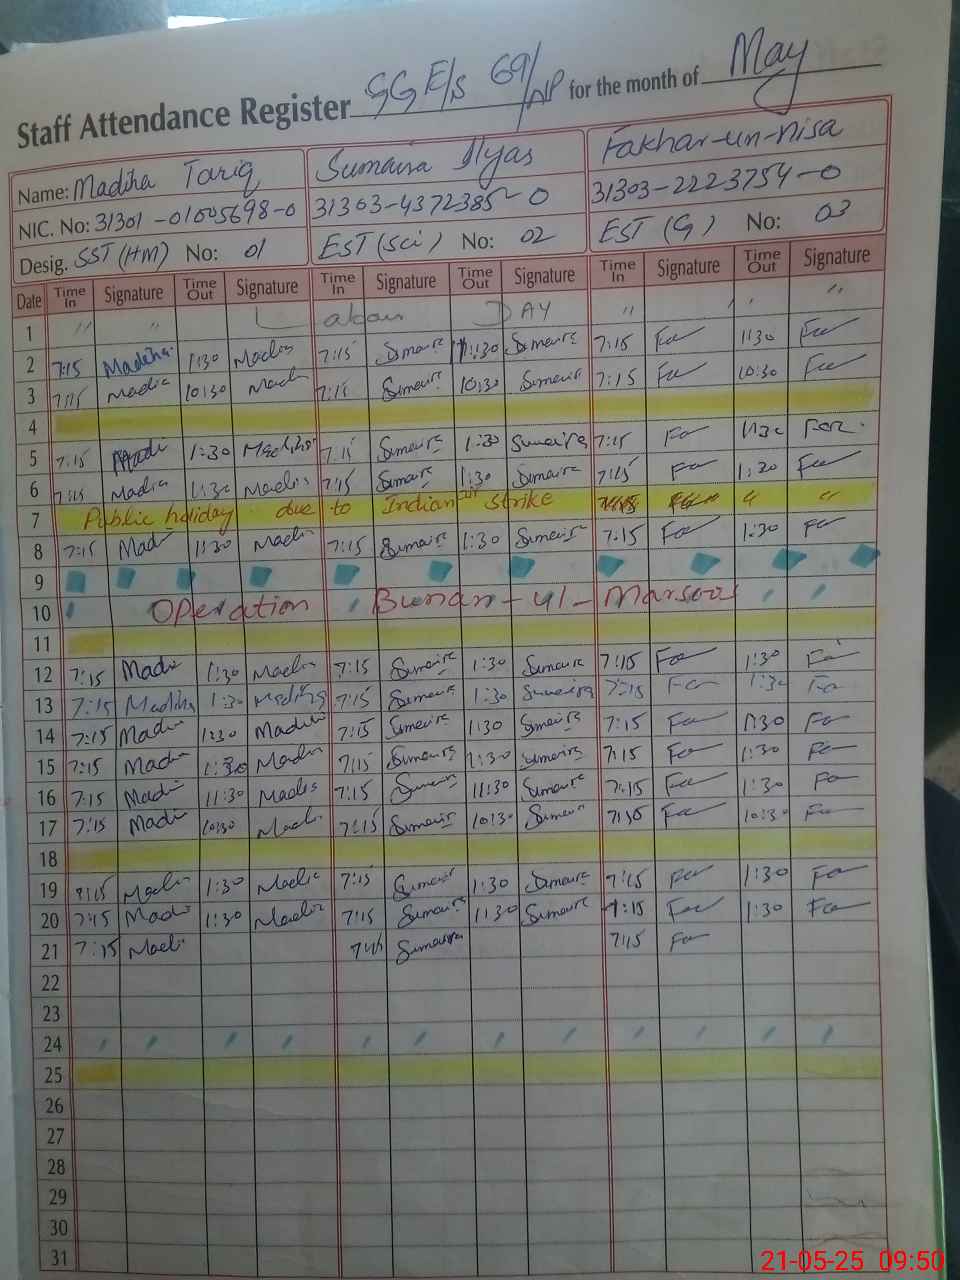 Staff Attendance Register GGE/S 69/NP for the month of May
Name: Madiha Tariq Sumaira Ilyas Fakhar-un-nisa
NIC. No: 31301-01005698-0 31303-4372385-0 31303-2223754-0
Desig. SST (HM) No: 01 EST (Sci) No: 02 EST (G) No: 03
Date Time In Signature Time Out Signature Time In Signature Time Out Signature Time In Signature Time Out Signature
1 " " DAY " " " "
2 7:15 Madiha 1:30 Madia 7:15 Sumaire 1:30 Sumaire 7:15 Fa 1:30 Fa
3 7:15 Madia 10:30 Madi 7:15 Sumaire 10:30 Sumaire 7:15 Fa 10:30 Fa
4
5 7:15 Madi 1:30 Madiha 7:15 Sumaire 1:30 Sumaira 7:15 Fa 1:30
6 7:15 Madia 1:30 Madia 7:15 Sumaire 1:30 Sumaire 7:15 Fa 1:30 Fa
7 Public holiday due to Indian strike " "
8 7:15 Madi 1:30 Madi 7:15 Sumaire 1:30 Sumaire 7:15 Fa 1:30 Fa
9
10 Operation Bunan-ul-Marsoos
11
12 7:15 Madi 1:30 Madia 7:15 Sumaire 1:30 Sumaire 7:15 Fa 1:30 Fa
13 7:15 Madiha 1:30 Madiha 7:15 Sumaire 1:30 Sumaira 7:15 Fa 1:30 Fa
14 7:15 Madi 1:30 Madi 7:15 Sumaire 1:30 Sumaire 7:15 Fa 1:30 Fa
15 7:15 Madi 1:30 Madi 7:15 Sumaire 1:30 Sumaire 7:15 Fa 1:30 Fa
16 7:15 Madi 11:30 Madia 7:15 Sumaire 11:30 Sumaire 7:15 Fa 1:30 Fa
17 7:15 Madi 10:30 Madi 7:15 Sumaire 10:30 Sumaire Fa 10:30 Fa
18
19 7:15 Madi 1:30 Madia 7:15 Sumaire 1:30 Sumaire 7:15 Fa 1:30 Fa
20 7:15 Madi 1:30 Madia 7:15 Sumaire 1:30 Sumaire 7:15 Fa 1:30 Fa
21 7:15 Madi Sumaira 7:15 Fa
22
23
24
25
26
27
28
29
30
31
21-05-25 09:50